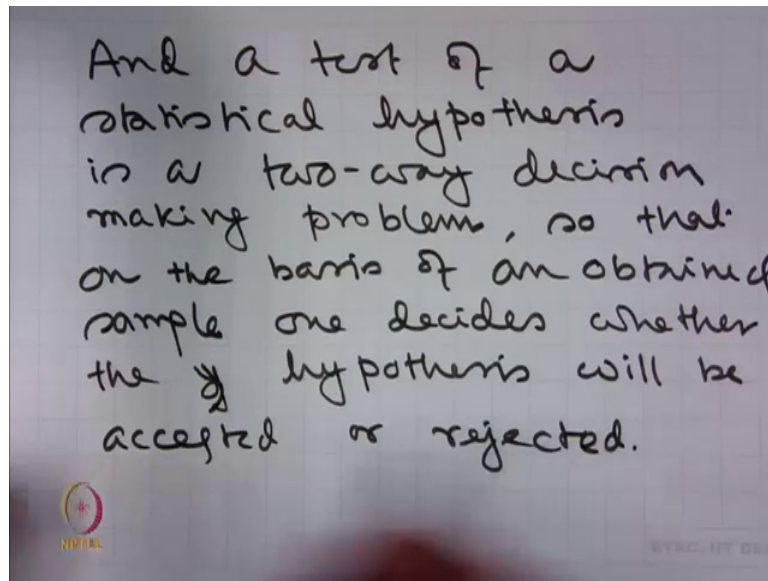 And a test of a
statistical hypothesis
is a two-way decision
making problem, so that
on the basis of an obtained
sample one decides whether
the hypothesis will be
accepted or rejected.
NPTEL
ETSC, IIT DE